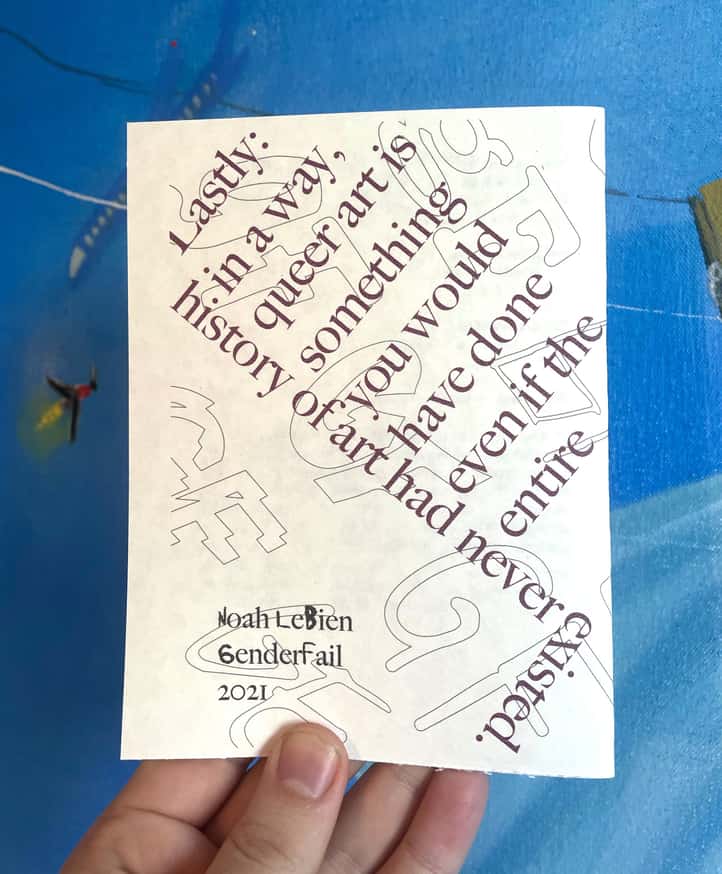 Lastly:
in a way,
queer art is
something
you would
have done
even if the
entire
history of art had never
existed.
Noah LeBien
GenderFail
2021